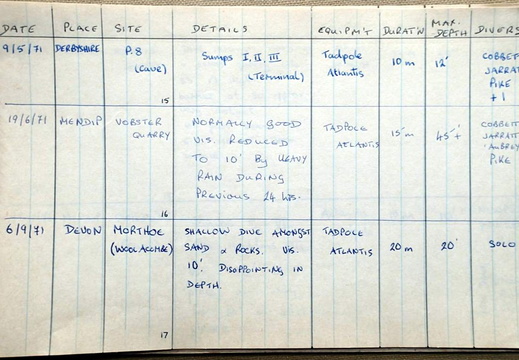 DATE PLACE SITE DETAILS EQUIPM'T DURAT'N MAX. DEPTH DIVERS
9/5/71 DERBYSHIRE P.8 (Cave) Sumps I, II, III (Terminal) Tadpole Atlantis 10 m 12' COBBETT JARRATT PIKE + 1
15
19/6/71 MENDIP VOBSTER QUARRY NORMALLY GOOD VIS. REDUCED TO 10' BY HEAVY RAIN DURING PREVIOUS 24 hrs. TADPOLE ATLANTIS 15 m 45'+ COBBETT JARRATT AUBREY PIKE
16
6/9/71 DEVON MORTHOE (WOOLACOMBE) SHALLOW DIVE AMONGST SAND & ROCKS. VIS. 10'. DISAPPOINTING IN DEPTH. TADPOLE ATLANTIS 20 m 20' SOLO
17